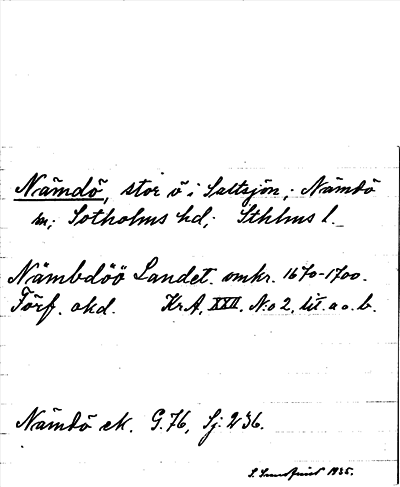 Nämdö, stor ö i Saltsjön; Nämdö
sn; Sotholms hd; Sthlms l.
Nämbdöö Landet. omkr. 1670-1700.
Förf. okd. KrA, XXII. N:o 2, lit. a o. b.
Nämdö ek. G. 76, Sj: 236.
S. Sundqvist 1935.